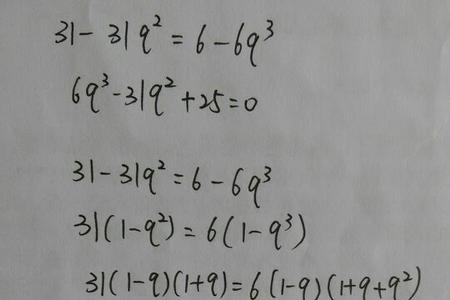 31-31q²=6-6q³
6q³-31q²+25=0
31-31q²=6-6q³
31(1-q²)=6(1-q³)
31(1-q)(1+q)=6(1-q)(1+q+q²)